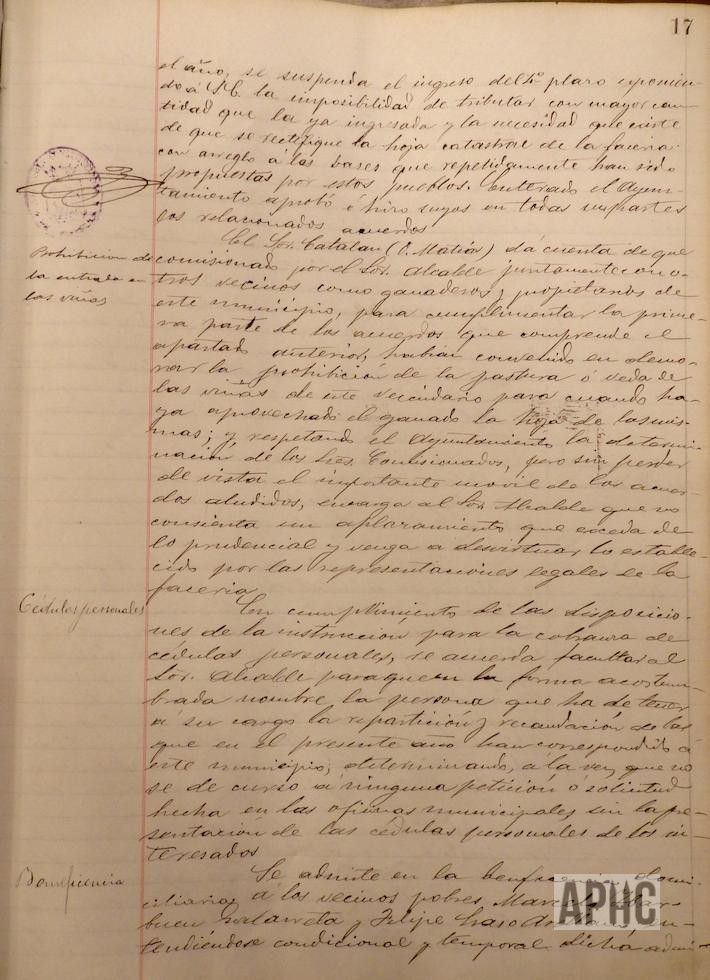 17
el año, se suspenda el ingreso del 4º plazo exponien-
do á S. E. la imposibilidad de tributar con mayor can-
tidad que la ya ingresada y la necesidad que existe
de que se rectifique la hoja catastral de la facería
con arreglo á las bases que repetidamente han sido
propuestas por estos pueblos. Enterado el Ayun-
tamiento aprobó é hizo suyos en todas sus partes
los relacionados acuerdos
Prohibicion de
la entrada en
las viñas
El Sor. Catalan (D. Matías) dá cuenta de que
comisionado por el Sor. Alcalde juntamente con o-
tros vecinos como ganaderos y propietarios de
este municipio, para cumplimentar la prime-
ra parte de los acuerdos que comprende el
apartado anterior, habían convenido en demo-
rar la prohibición de la pastura ó veda de
las viñas de este vecindario para cuando ha-
ya aprovechado el ganado la hoja de las mis-
mas; y, respetando el Ayuntamiento la determi-
nación de los Sres. Comisionados, pero sin perder
de vista el importante movil de los acuer-
dos aludidos, encarga al Sor. Alcalde que no
consienta un aplazamiento que exceda de
lo prudencial y venga a desvirtuar lo estable-
cido por las representaciones legales de la
facería.
Cédulas personales
En cumplimiento de las disposicio-
nes de la instrucción para la cobranza de
cédulas personales, se acuerda facultar al
Sor. Alcalde para que en la forma acostum-
brada nombre la persona que ha de tener
á su cargo la repartición y recaudación de las
que en el presente año han correspondido á
este municipio; determinando, á la vez, que no
se de curso á ninguna petición ó solicitud
hecha en las oficinas municipales sin la pre-
sentación de las cédulas personales de los in-
teresados
Beneficencia
Se admite en la beneficencia domi-
ciliaria á los vecinos pobres, Marcelo
Galarreta y Felipe en-
tendiéndose condicional y temporal dicha admi-
APHC